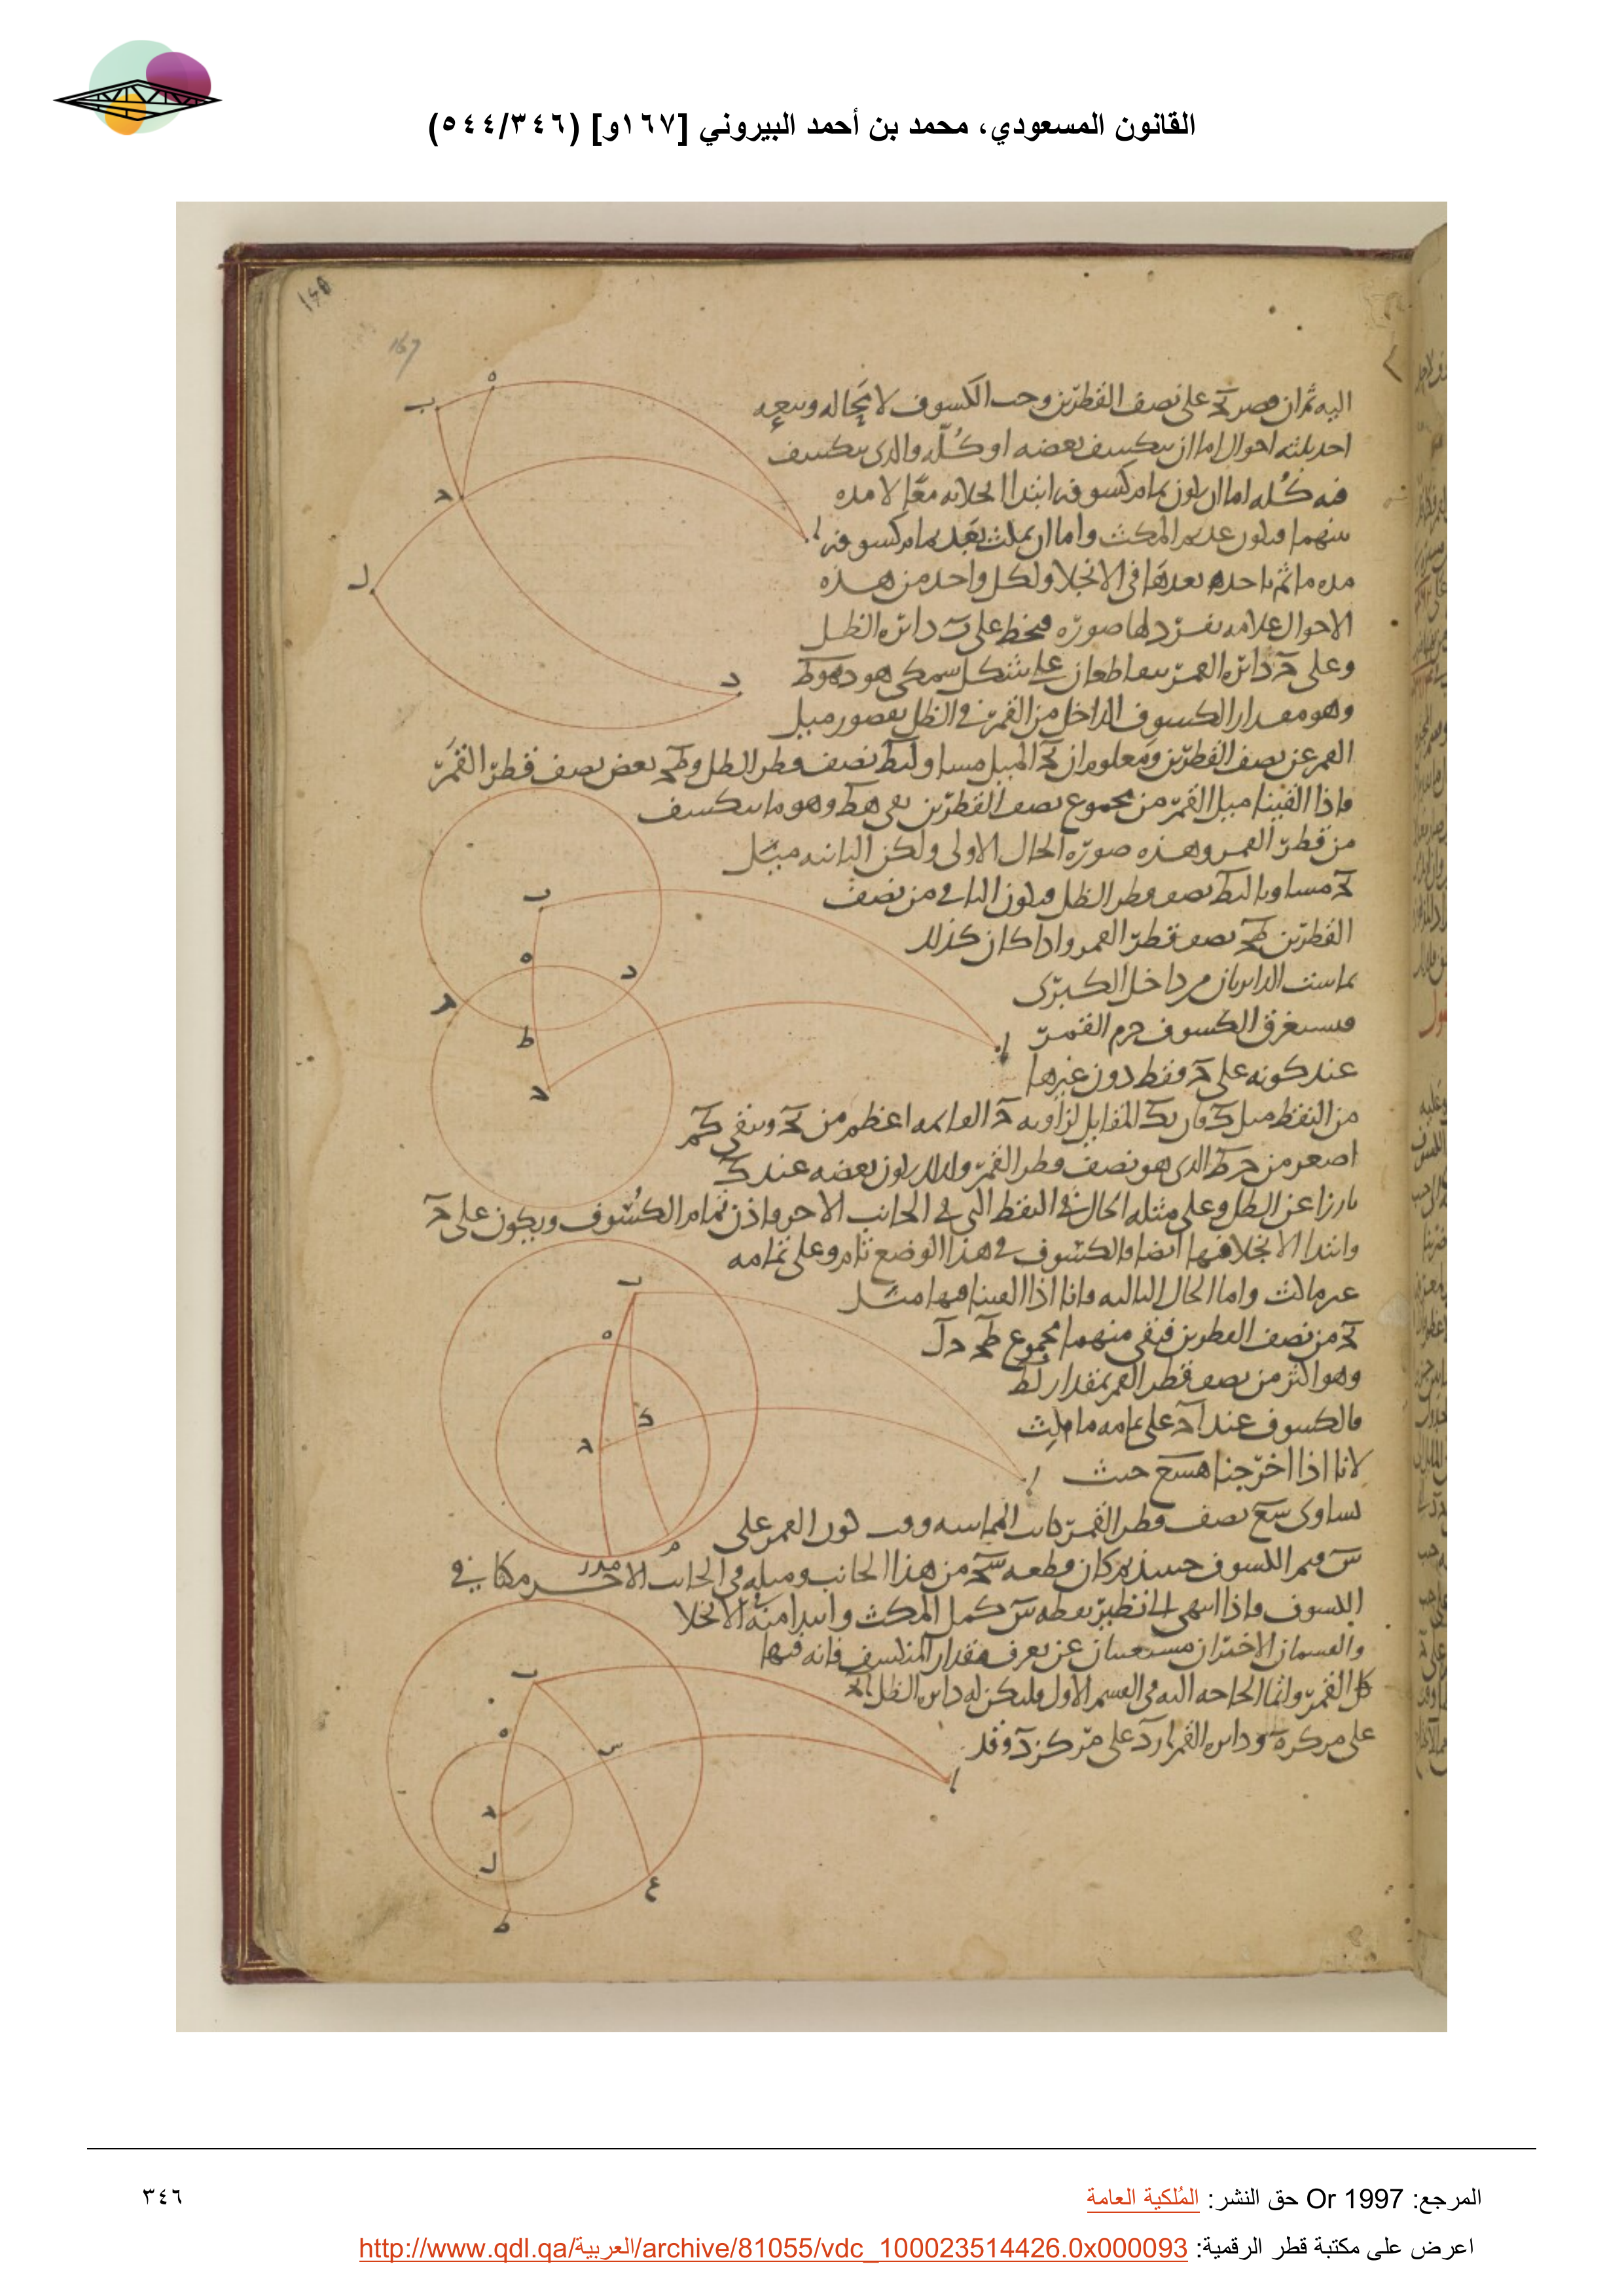 القانون المسعودي، محمد بن أحمد البيروني [١٦٧و] (٥٤٤/٣٤٦)
167
اليه ثم ان قصر على نصف القطرين وجب الكسوف لا محاله
احد ثلثه احوال اما ان ينكسف بعضه او كله والذى ينكسف
كله اما ان يكون تمام كسوفه ابتدا انجلائه معا لا مده
بينهما فيكون عديم المكث واما ان يمكث بعد تمام كسوفه
مده ما ثم ياخذ بعدها فى الانجلا ولكل واحد من هذه
الاحوال علامه تفرد لها صوره فنخط على ب دائره الظل
وعلى ح دائره القمر يتقاطعان على شكل سمكى
وهو مقدار الكسوف الداخل من القمر فى الظل بقصور ميل
القمر عن نصف القطرين ومعلوم ان الميل مساو نصف قطر الظل بعض نصف قطر القمر
فاذا القينا ميل القمر من مجموع نصف القطرين بقى هط وهو ما ينكسف
من قطر القمر وهذه صوره الحال الاولى وليكن الثانيه ميل
مساويا نصف قطر الظل ويكون الباقى من نصف
القطرين طح نصف قطر القمر واذا كان كذلك
تماست الدائرتان من داخل الكبرى
فيستغرق الكسوف جرم القمر
عند كونه على ح فقط دون غيرها
من النقط المقابل لزاويه ح القائمه اعظم من
اصغر من الذى هو نصف قطر القمر ولذلك يكون بعضه عند ك
بارزا عن الظل وعلى مثله الحال فى النقط التى فى الجانب الاخر فاذن تمام الكسوف ويكون على ح
وابتدا الانجلا فيها ايضا فالكسوف فى هذا الوضع تام وعلى تمامه
غير ماكث واما الحال الثالثه فانا اذا القينا فيها مثل
من نصف القطرين فيبقى منهما مجموع طح
وهو اكثر من نصف قطر القمر بمقدار لط
فالكسوف عند ح على تمامه ماكث
لانا اذا اخرجنا حيث
يساوى سع نصف قطر القمر كانت المماسه وقت كون القمر على
س فتم الكسوف حينئذ من هذا الجانب وميله فى الجانب الاخر مكافى
الكسوف فاذا انتهى الى نظير نقطه س كمل المكث وابتدا منه الانجلا
والقسمان الاخيران مستغنيان عن تعرف مقدار المنكسف فانه فيها
كل القمر وانما الحاجه اليه فى القسم الاول وليكن له دائره الظل
على مركز ه ودائره القمر على مركز
ه
ب
ح
ا
ل
د
ب
ه
د
ح
ا
ط
ح
ب
ه
ك
ح
ا
م
ب
ه
س
ح
ا
ل
ع
ط
المرجع: Or 1997 حق النشر: المُلكية العامة
٣٤٦
اعرض على مكتبة قطر الرقمية: http://www.qdl.qa/العربية/archive/81055/vdc_100023514426.0x000093